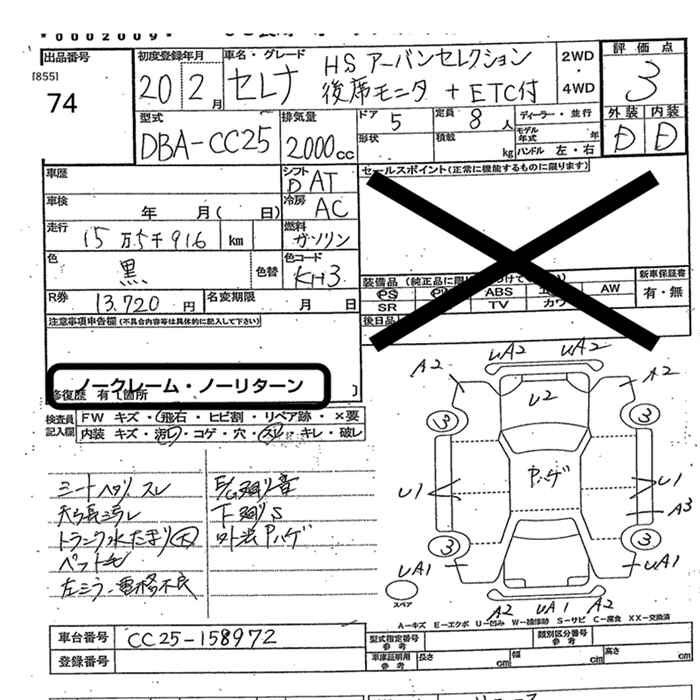 0002009
出品番号
[855]
74
初度登録年月
20 2月
車名・グレード
セレナ
HS アーバンセレクション
後席モニタ + ETC付
2WD
・
4WD
評価点
3
外装 内装
D D
型式
DBA-CC25
排気量
2000cc
ドア 5
形状
定員 8人
積載 kg
ディーラー・並行
モデル年式 年
ハンドル 左・右
車歴
シフト
DAT
セールスポイント(正常に機能するものに限ります)
車検 年 月( 日)
冷房 AC
走行 15万5千916 km
燃料
ガソリン
色 黒 色替
色コード
KH3
装備品
PS ABS AW
SR TV
新車保証書
有・無
R券 13.720円
名変期限 月 日
後日品
注意事項申告欄(不具合内容等は具体的に記入して下さい)
ノークレーム・ノーリターン
修復歴 有[箇所 ]
検査員記入欄
FW キズ・飛石・ヒビ割・リペア跡・×要
内装 キズ・汚れ・コゲ・穴・スレ・キレ・破レ
シートヘタリ スレ
トランク水たまり大
下廻りS
Pハゲ
A2 UA2 UA2 A2
U2
3 3
Pハゲ
U1 U1
A3
3 3
UA1 UA1
スペア
A2 UA1 A2
A-キズ E-エクボ U-凹み W-補修跡 S-サビ C-腐食 XX-交換済
車台番号 CC25-158972
登録番号
型式指定番号
参考
類別区分番号
参考
車庫証明用
参考
長さ cm 幅 cm 高さ cm